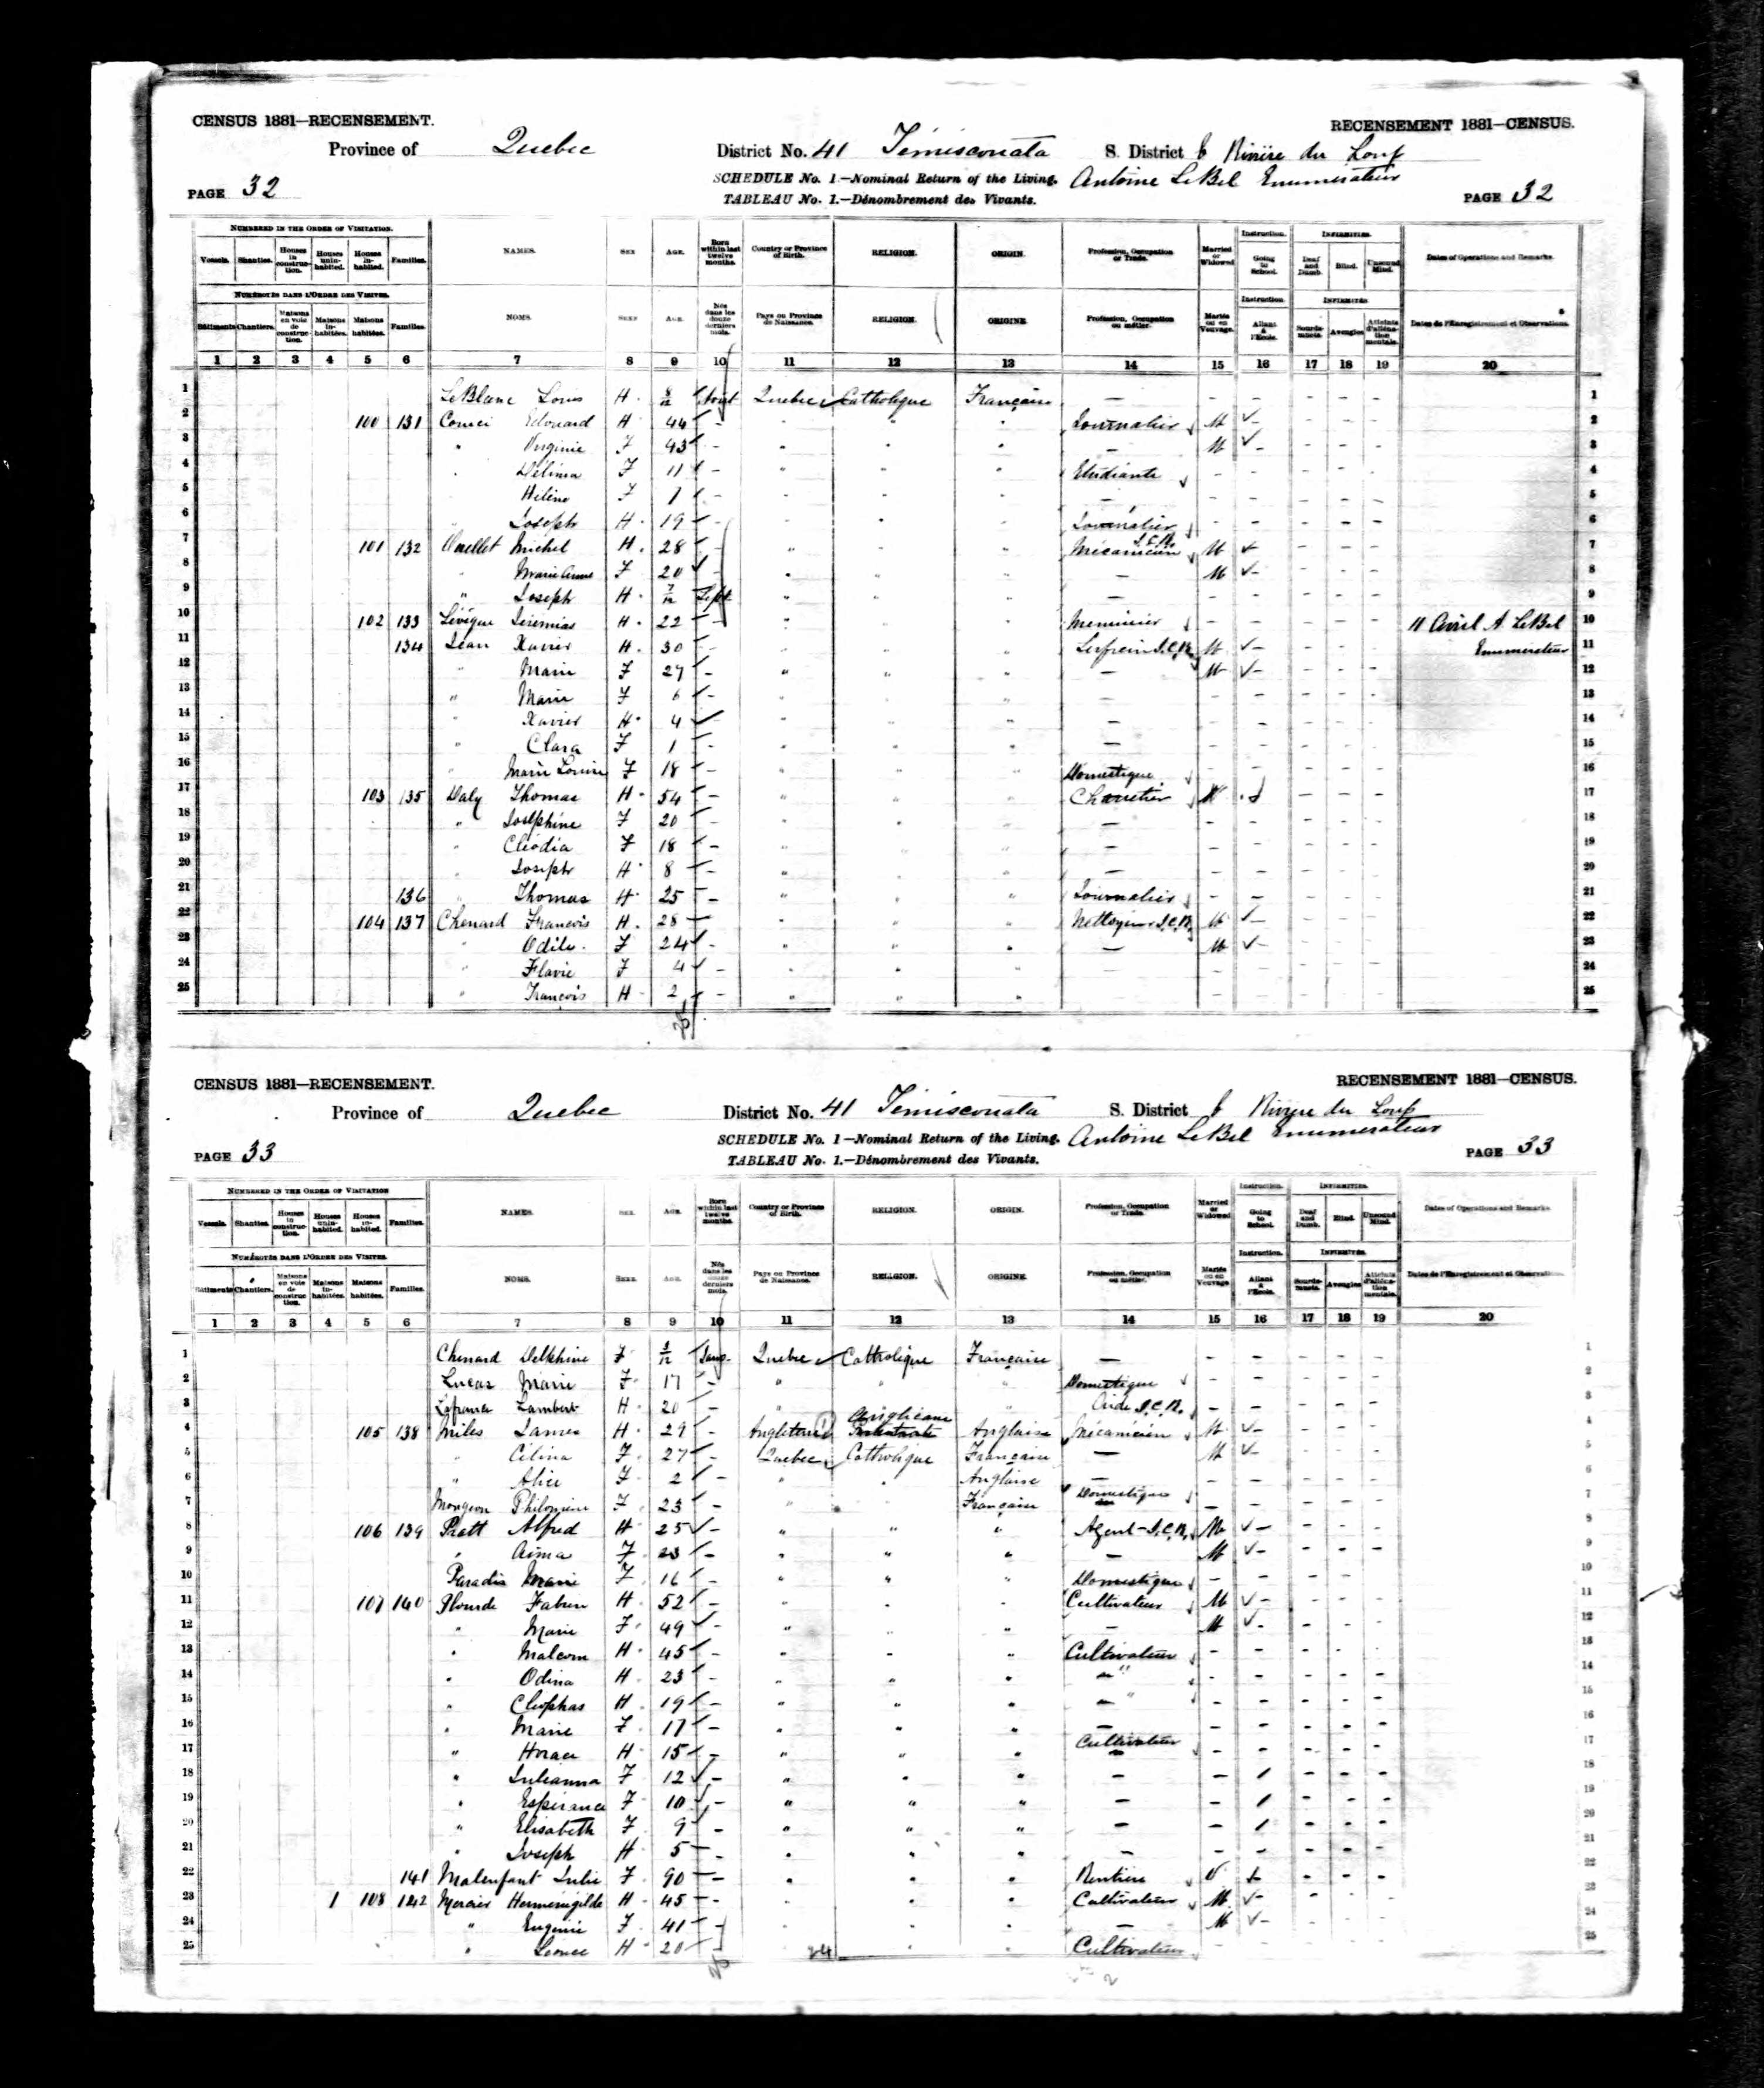 CENSUS 1881—RECENSEMENT. RECENSEMENT 1881—CENSUS.
Province of Quebec District No. 41 Témiscouata S. District b Rivière du Loup
SCHEDULE No. 1—Nominal Return of the Living. Antoine LeBel Enumerateur
PAGE 32 TABLEAU No. 1.—Dénombrement des Vivants. PAGE 32
NUMBERED IN THE ORDER OF VISITATION. NAMES. SEX AGE. Born within last twelve months. Country or Province of Birth. RELIGION. ORIGIN. Profession, Occupation or Trade. Married or Widowed Instruction. INFIRMITIES. Dates of Operations and Remarks.
Vessels. Shanties. Houses in construction. Houses uninhabited. Houses inhabited. Families. Going to School. Deaf and Dumb. Blind. Unsound Mind.
NUMÉROTÉS DANS L'ORDRE DES VISITES. NOMS. SEXE AGE. Nés dans les douze derniers mois. Pays ou Province de Naissance. RELIGION. ORIGINE. Profession, Occupation ou métier. Mariés ou en Veuvage. Instruction. INFIRMITÉS Dates de l'Enregistrement et Observations.
Bâtiments Chantiers. Maisons en voie de construction. Maisons inhabitées. Maisons habitées. Familles. Allant à l'École. Sourds-muets. Aveugles Atteints d'aliénation mentale.
1 2 3 4 5 6 7 8 9 10 11 12 13 14 15 16 17 18 19 20
1 LeBlanc Louis H Aout Quebec Catholique Française — 1
2 100 131 Edouard H 44 " " " Journalier M 2
3 " Virginie F 43 " " " — M 3
4 " Délima F 11 " " " Etudiante 4
5 Hélène F 1 " " " — 5
6 " Joseph H 19 " " " Journalier 6
7 101 132 Ouellet Michel H 28 " " " Mécanicien I.C.R. M 7
8 " Marie Anne F 20 " " " — M 8
9 " Joseph H 7/12 Sept " " " — 9
10 102 133 Lévêque Jérémias H 22 " " " Menuisier 11 Avril A LeBel 10
11 134 Jean Xavier H 30 " " " Serfrein I.C.R. M Enumerateur 11
12 " Marie F 27 " " " — M 12
13 " Marie F 6 " " " — 13
14 " Xavier H 4 " " " — 14
15 " Clara F 1 " " " — 15
16 " Marie Louise F 18 " " " Domestique 16
17 103 135 Daly Thomas H 54 " " " Charretier 17
18 " Josephine F 20 " " " — 18
19 " Cléodia F 18 " " " — 19
20 " Joseph H 8 " " " — 20
21 136 " Thomas H 25 " " " Journalier 21
22 104 137 Chenard Francois H 28 " " " Nettoyeur I.C.R. M 22
23 " Odile F 24 " " " — M 23
24 " Flavie F 4 " " " — 24
25 " Francois H 2 " " " — 25
CENSUS 1881—RECENSEMENT. RECENSEMENT 1881—CENSUS.
Province of Quebec District No. 41 Témiscouata S. District b Rivière du Loup
SCHEDULE No. 1—Nominal Return of the Living. Antoine LeBel Enumerateur
PAGE 33 TABLEAU No. 1.—Dénombrement des Vivants. PAGE 33
NUMBERED IN THE ORDER OF VISITATION NAMES. SEX. AGE. Born within last twelve months. Country or Province of Birth. RELIGION. ORIGIN. Profession, Occupation or Trade. Married or Widowed Instruction. INFIRMITIES. Dates of Operations and Remarks.
Vessels. Shanties. Houses in construction. Houses uninhabited. Houses inhabited. Families. Going to School. Deaf and Dumb. Blind. Unsound Mind.
NUMÉROTÉS DANS L'ORDRE DES VISITES. NOMS. SEXE. AGE. Nés dans les douze derniers mois. Pays ou Province de Naissance. RELIGION. ORIGINE. Profession, Occupation ou métier. Mariés ou en Veuvage. Instruction. INFIRMITÉS. Dates de l'Enregistrement et Observations.
Bâtiments Chantiers. Maisons en voie de construction. Maisons inhabitées. Maisons habitées. Familles. Allant à l'École. Sourds-muets. Aveugles. Atteints d'aliénation mentale.
1 2 3 4 5 6 7 8 9 10 11 12 13 14 15 16 17 18 19 20
1 Chenard Delphine F Janv. Quebec Catholique Française — 1
2 Lucas Marie F 17 " " " Domestique 2
3 Lafrance Lambert H 20 " " " Aide I.C.R. 3
4 105 138 Miles James H 29 Angleterre Anglicane Protestante Anglaise Mécanicien M 4
5 " Célina F 27 Quebec Catholique Française — M 5
6 " Alice F 2 " " Anglaise — 6
7 Mongeon Philomène F 23 " " Française Domestique 7
8 106 139 Pratt Alfred H 25 " " " Agent I.C.R. M 8
9 " Aima F 23 " " " — M 9
10 Paradis Marie F 16 " " " Domestique 10
11 107 140 Plourde Fabien H 52 " " " Cultivateur M 11
12 " Marie F 49 " " " — M 12
13 " Malcom H 45 " " " Cultivateur 13
14 " Odina H 23 " " " " 14
15 " Cléophas H 19 " " " " 15
16 " Marie F 17 " " " — 16
17 " Horace H 15 " " " Cultivateur 17
18 " Julianna F 12 " " " — — 1 18
19 " Espérance F 10 " " " — — 1 19
20 " Elisabeth F 9 " " " — — 1 20
21 " Joseph H 5 " " " — 21
22 141 Malenfant Julie F 90 " " " Rentière V 22
23 1 108 142 Mercier Hermenégilde H 45 " " " Cultivateur M 23
24 " Eugenie F 41 " " " — M 24
25 " Léonce H 20 24 " " Cultivateur 25